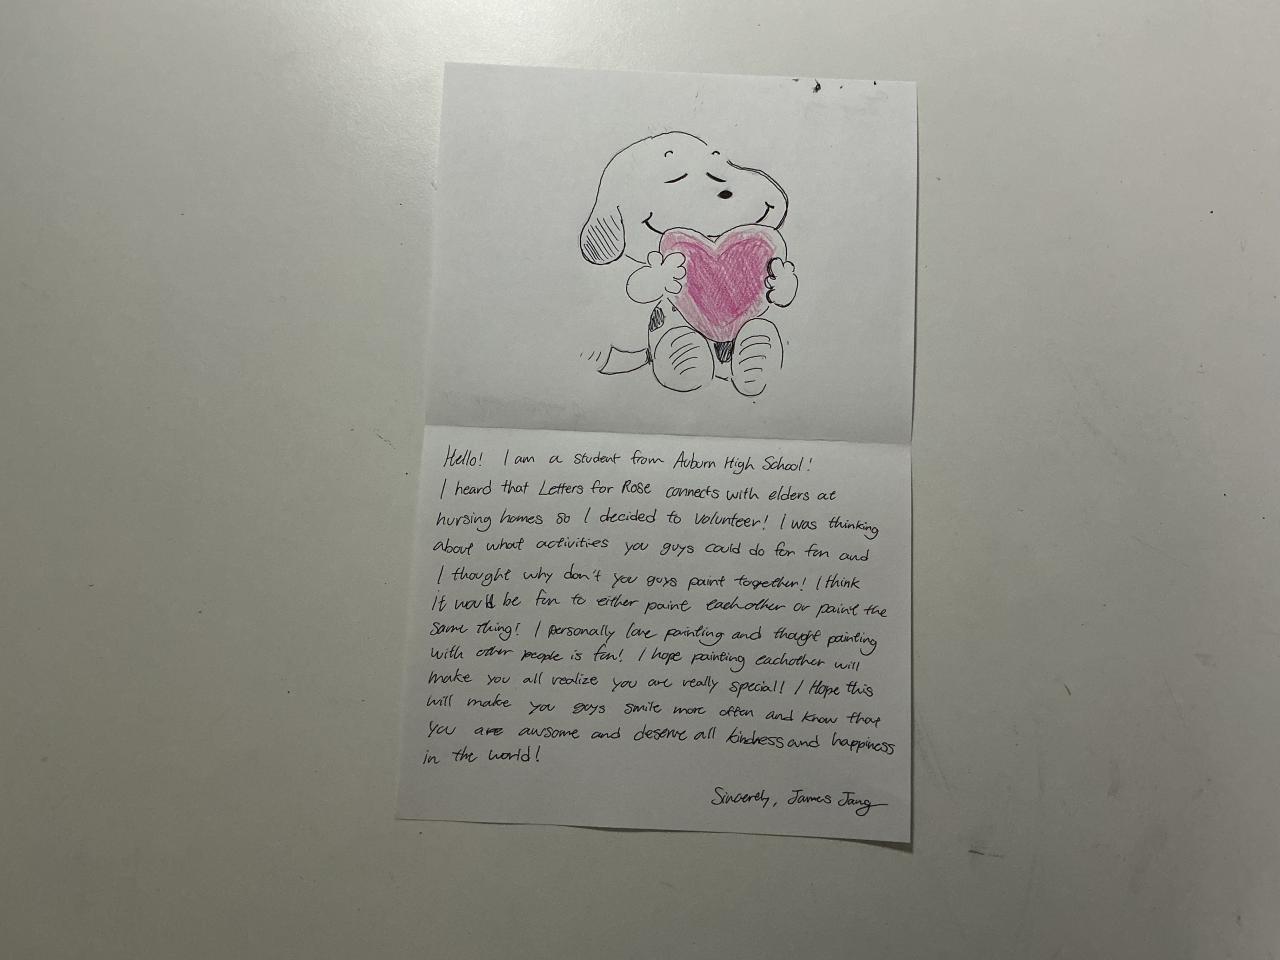 Hello! I am a student from Auburn High School!
I heard that Letters for Rose connects with elders at
nursing homes so I decided to volunteer! I was thinking
about what activities you guys could do for fun and
I thought why don't you guys paint together! I think
it would be fun to either paint eachother or paint the
same thing! I personally love painting and thought painting
with other people is fun! I hope painting eachother will
make you all realize you are really special! I Hope this
will make you guys smile more often and know that
You are awsome and deserve all kindness and happiness
in the world!
Sincerely, James Jang